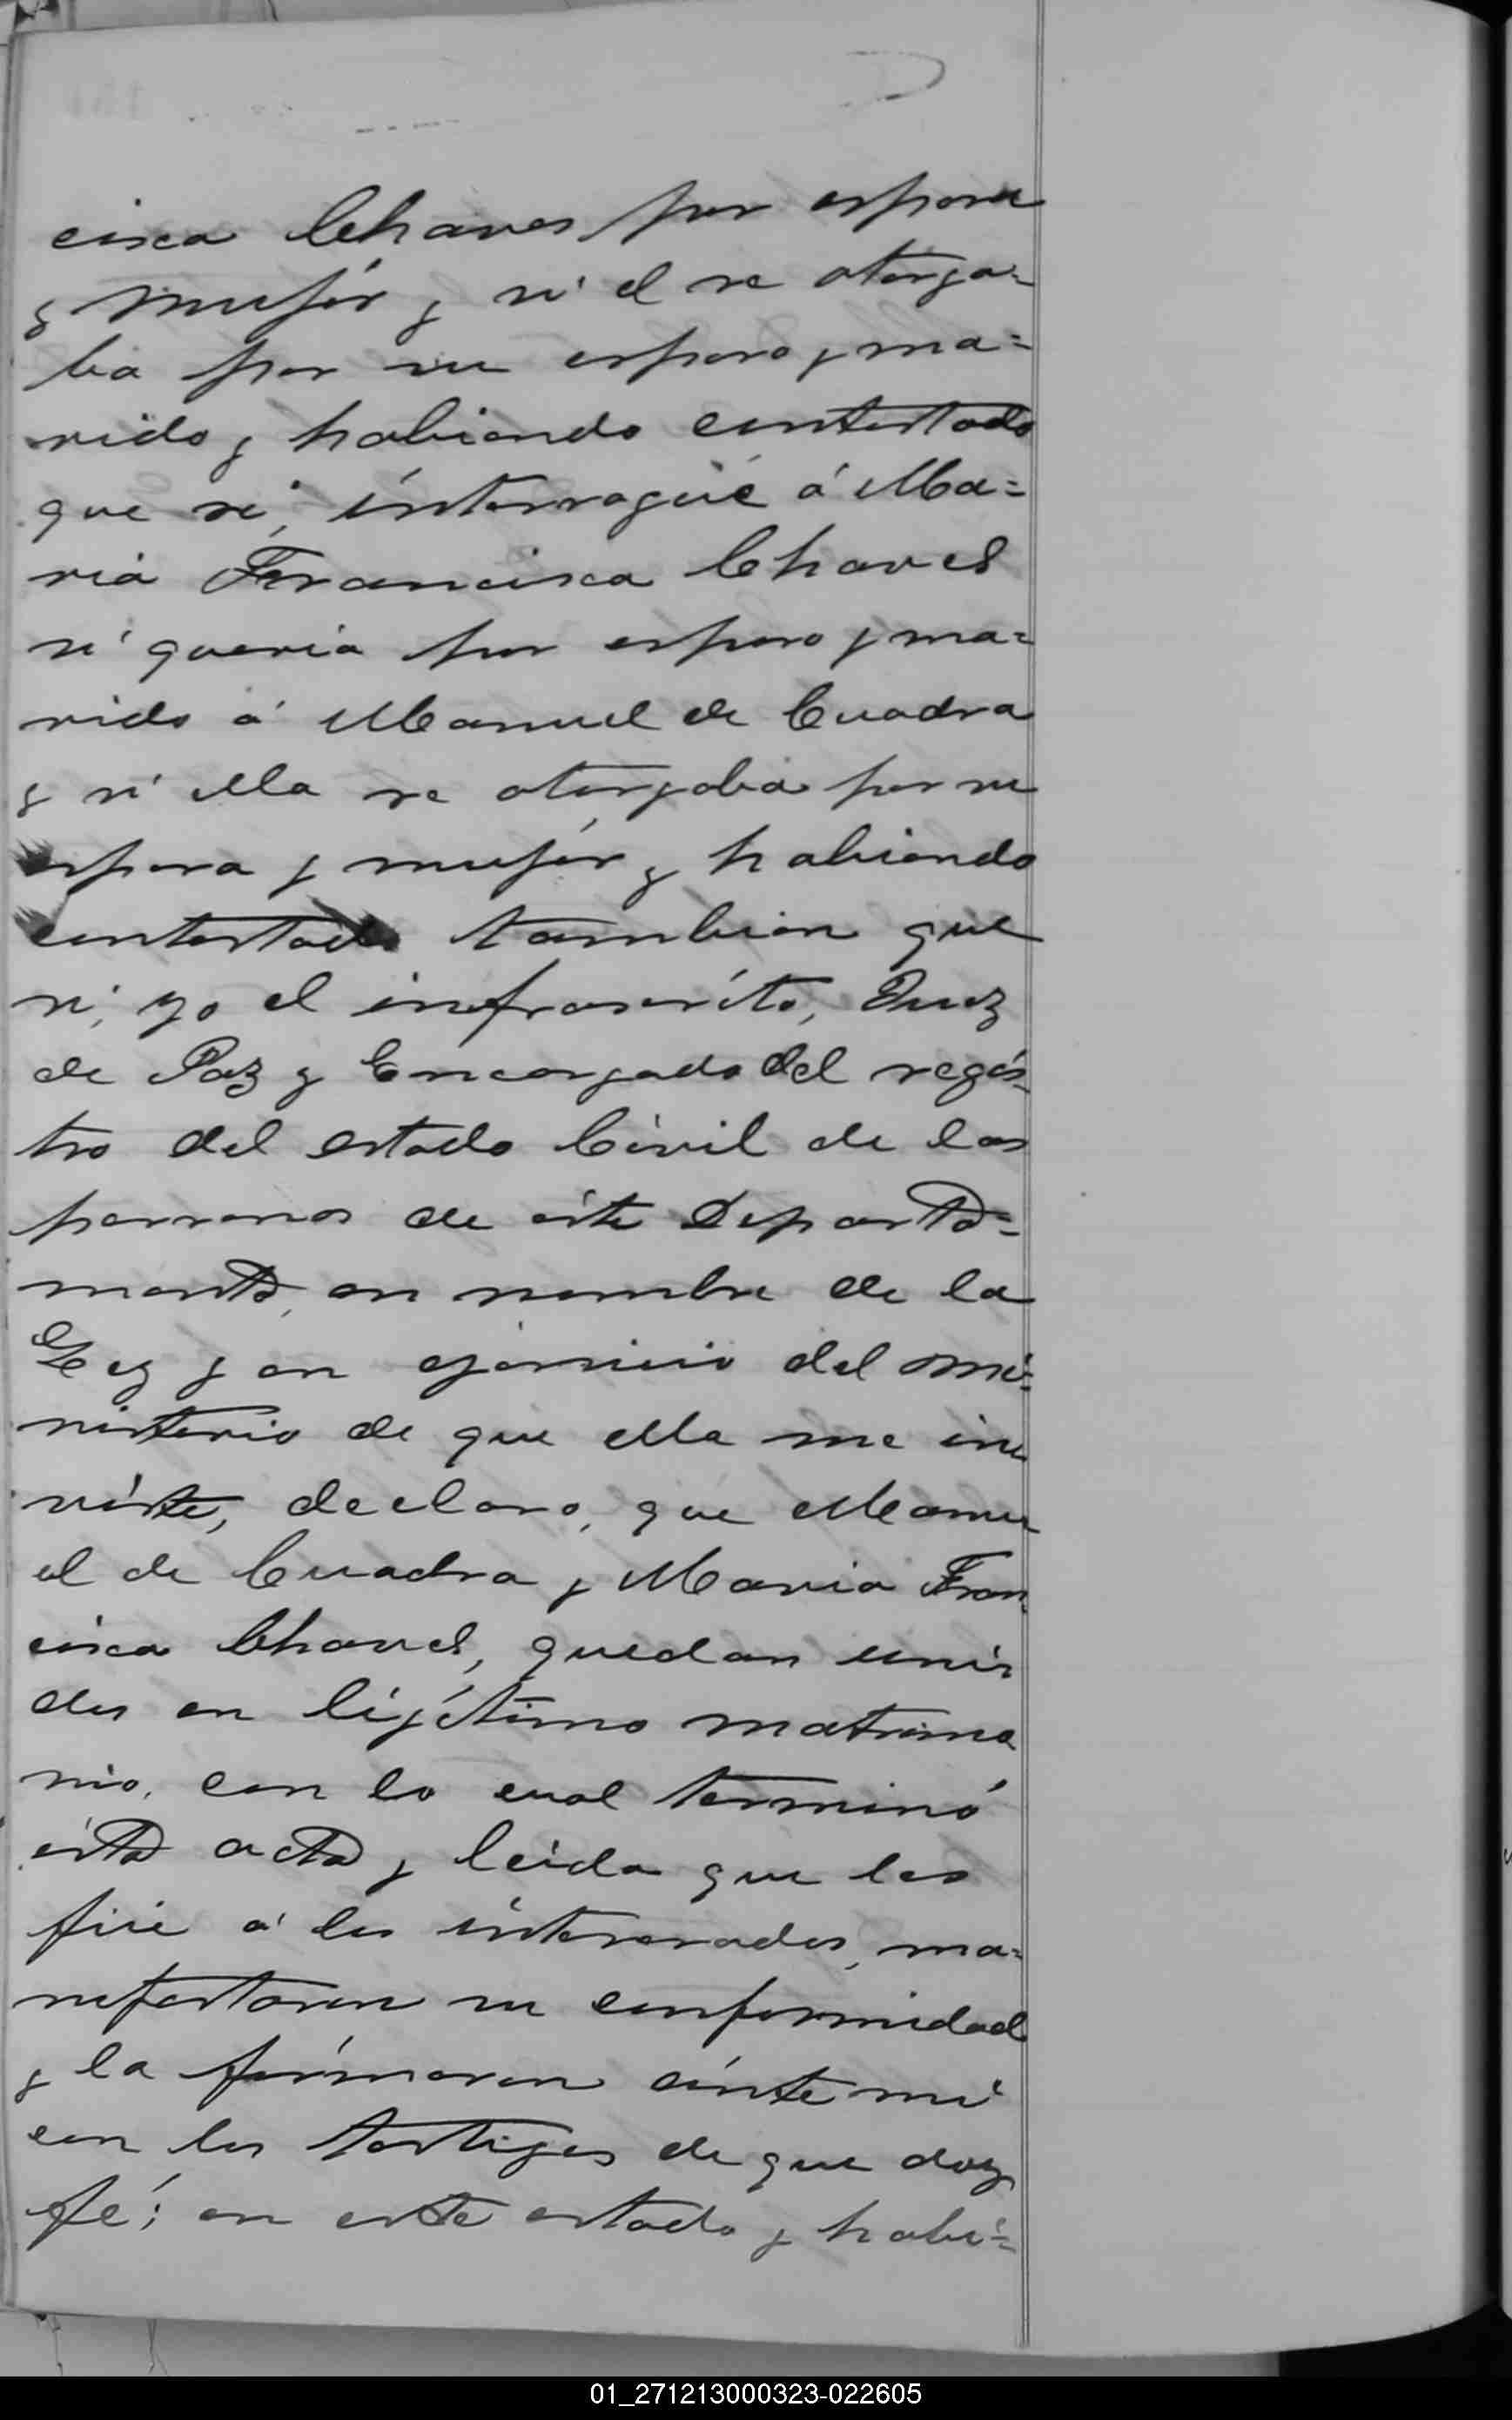 cisca Chaves por esposa
y mujér y si él se otorga=
ba por su esposo y ma=
rido, y habiendo contestado
que si, interrogué á Ma=
ria Francisca Chaves
si queria por esposo y ma=
rido á Manuel de Cuadra
y si ella se otorgaba por su
esposa y mujér y habiendo
contestado tambien que
si, yo el infrascrito, Juez
de Paz y Encargado del regis-
tro del estado Civil de las
personas de éste Departa=
mento, en nombre de la
Ley y en ejercicio del mi=
nisterio de que ella me in
viste, declaro, que Manu
el de Cuadra y Maria Fran
cisca Chaves, quedan uni
dos en lijítimo matrimo
nio, con lo cual terminó
ésta acta y leida que les
fué á los interesados, ma=
nifestaron su conformidad
y la firmaron ante mi
con los testigos de que doy
fé; en este estado y habi=
01_271213000323-022605